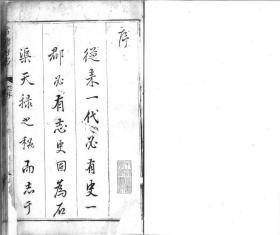 序
從来一代必有史一
郡必有志史固為石
渠天禄之秘而志于